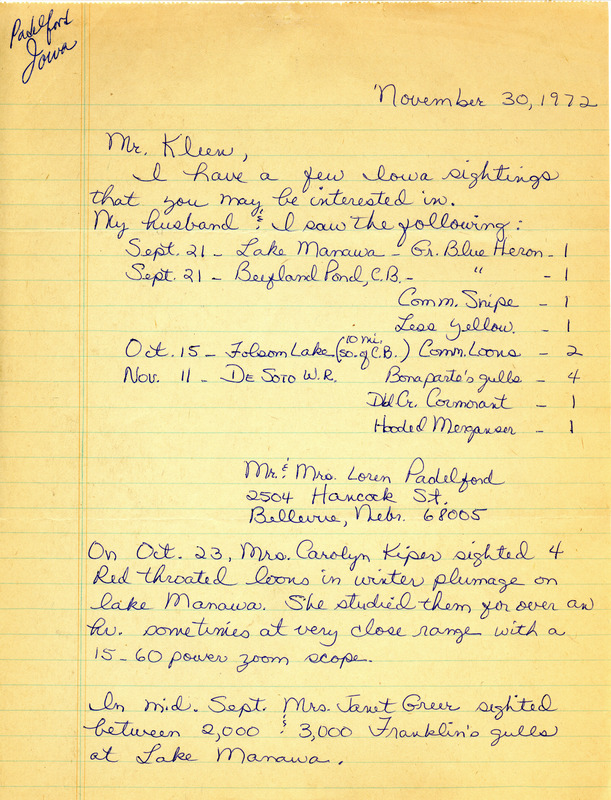 Padelford
Iowa
November 30, 1972
Mr. Kleen,
I have a few Iowa sightings
that you may be interested in.
My husband & I saw the following:
Sept. 21 - Lake Manawa - Gr. Blue Heron - 1
Sept. 21 - Pond, C.B. - " - 1
Comm. Snipe - 1
Less Yellow. - 1
Oct. 15 - Folsom Lake (10 mi. so. of C.B.) Comm. Loons - 2
Nov. 11 - De Soto W.R. Bonaparte's gulls - 4
Dbl Cr. Cormorant - 1
Hooded Merganser - 1
Mr. & Mrs. Loren Padelford
2504 Hancock St.
Bellevue, Nebr. 68005
On Oct. 23, Mrs. Carolyn Kiper sighted 4
Red throated loons in winter plumage on
lake Manawa. She studied them for over an
hr. sometimes at very close range with a
15-60 power zoom scope.
In mid. Sept. Mrs. Janet Greer sighted
between 2,000 & 3,000 Franklin's gulls
at Lake Manawa.